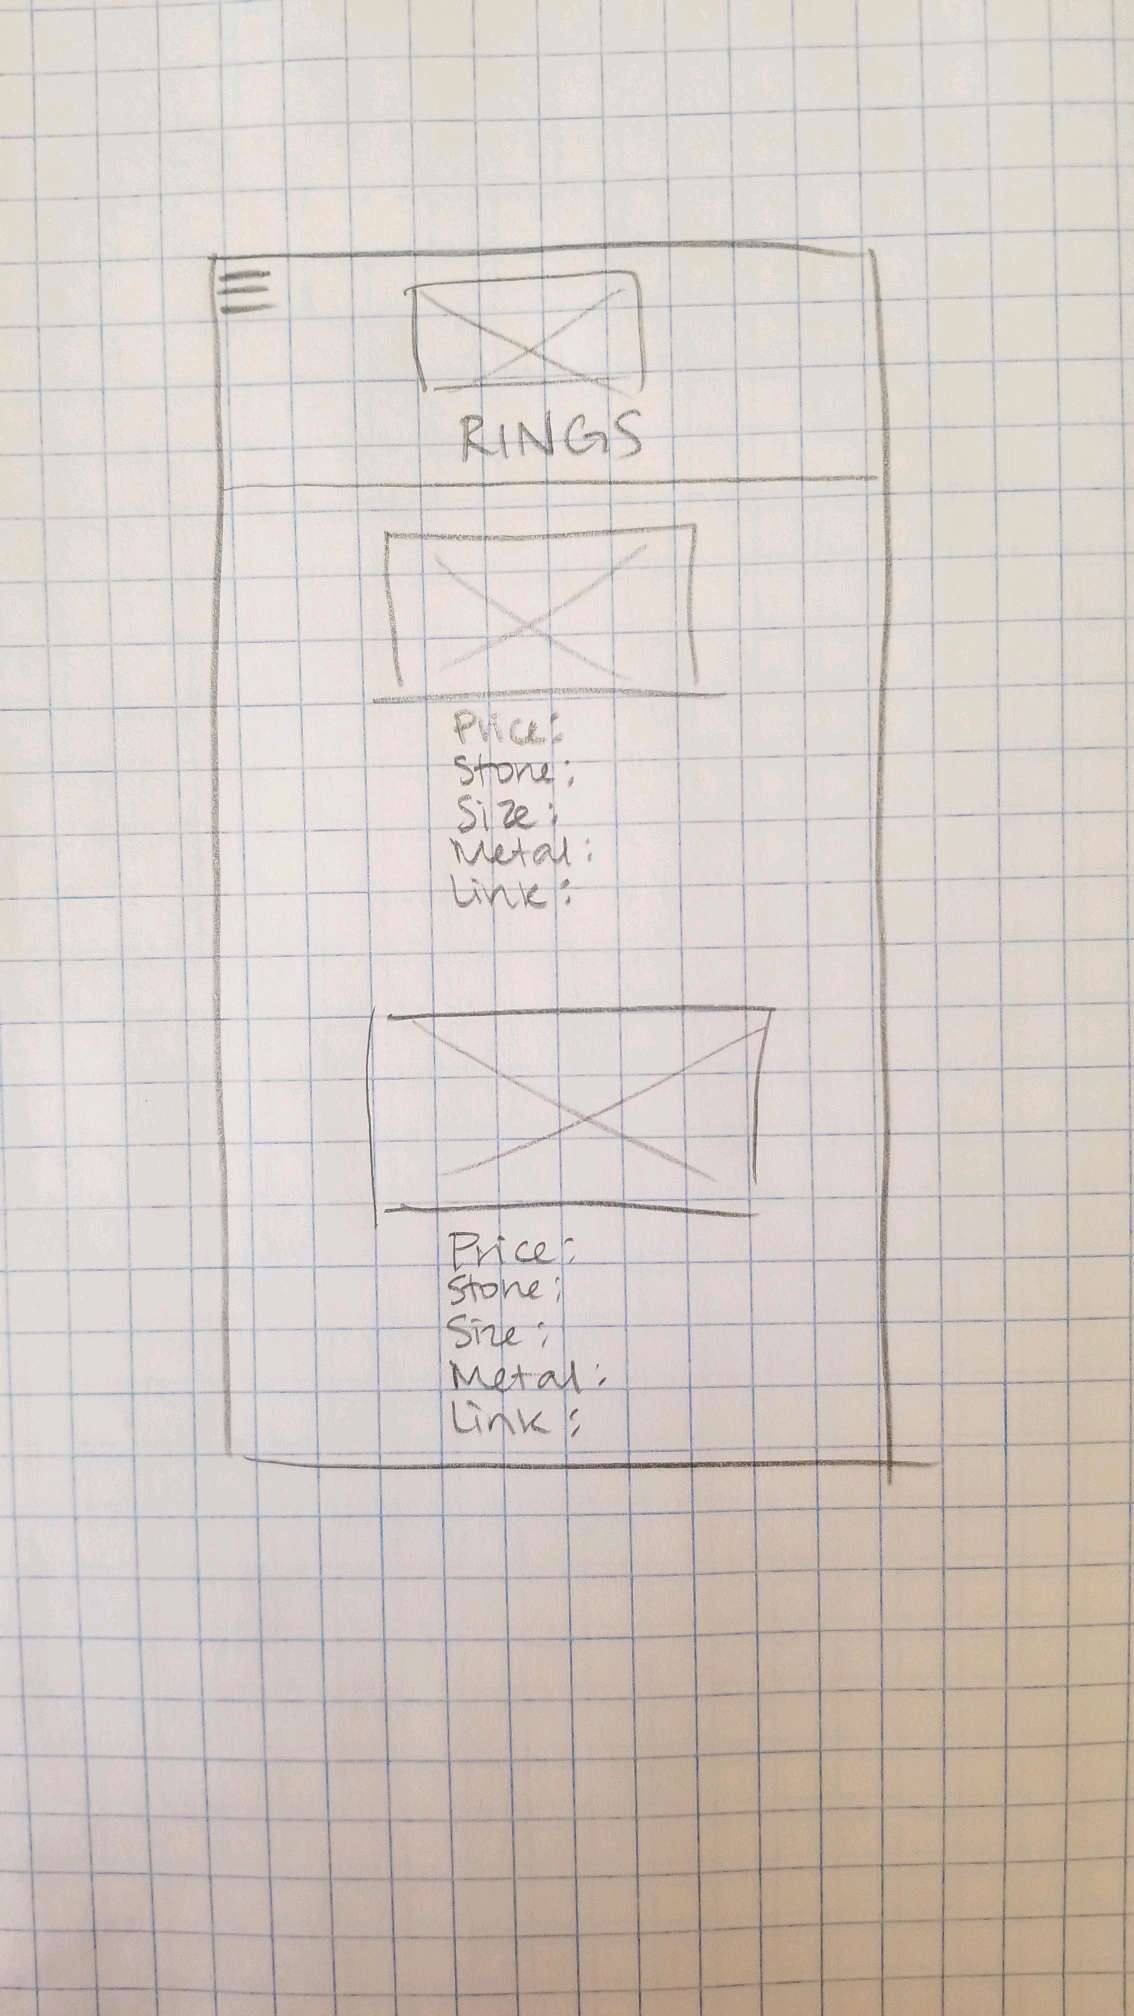 RINGS
Price:
Stone:
Size:
Metal:
Link:
Price:
Stone:
Size:
Metal:
Link: